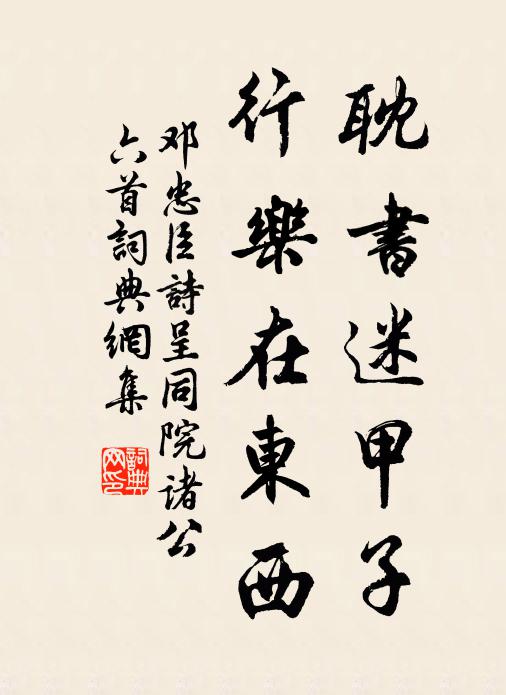 耽書迷甲子
行樂在東西
邓忠臣詩呈同院诸公
六首詞典網集
詞典网印